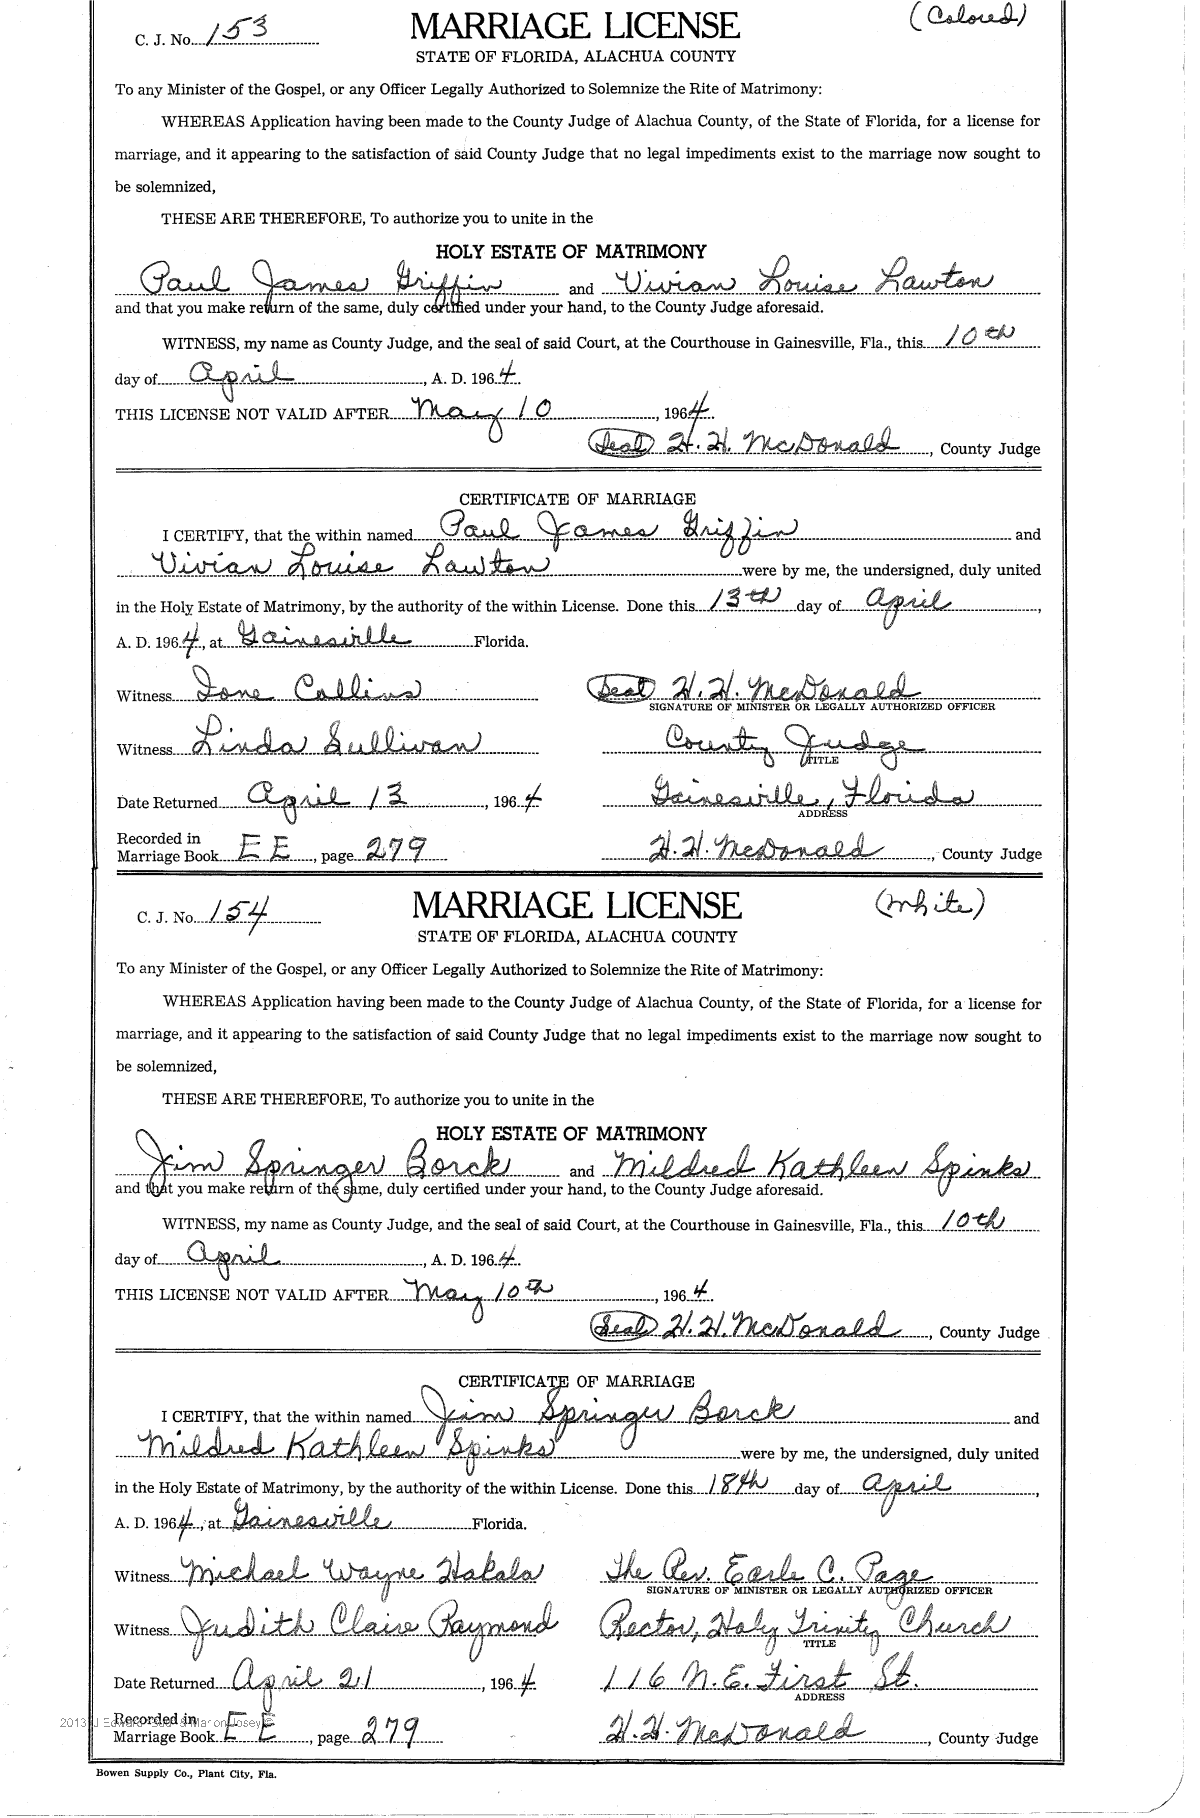 C. J. No. 153 MARRIAGE LICENSE (Colored)
STATE OF FLORIDA, ALACHUA COUNTY
To any Minister of the Gospel, or any Officer Legally Authorized to Solemnize the Rite of Matrimony:
WHEREAS Application having been made to the County Judge of Alachua County, of the State of Florida, for a license for
marriage, and it appearing to the satisfaction of said County Judge that no legal impediments exist to the marriage now sought to
be solemnized,
THESE ARE THEREFORE, To authorize you to unite in the
HOLY ESTATE OF MATRIMONY
Paul James Griffin and Vivian Louise Lawton
and that you make return of the same, duly certified under your hand, to the County Judge aforesaid.
WITNESS, my name as County Judge, and the seal of said Court, at the Courthouse in Gainesville, Fla., this 10th
day of April, A. D. 1964.
THIS LICENSE NOT VALID AFTER May 10, 1964.
(Seal) H. H. McDonald, County Judge
CERTIFICATE OF MARRIAGE
I CERTIFY, that the within named Paul James Griffin and
Vivian Louise Lawton were by me, the undersigned, duly united
in the Holy Estate of Matrimony, by the authority of the within License. Done this 13th day of April,
A. D. 1964, at Gainesville Florida.
Witness Ione Collins (Seal) H. H. McDonald
SIGNATURE OF MINISTER OR LEGALLY AUTHORIZED OFFICER
Witness Linda Sullivan County Judge
TITLE
Date Returned April 13, 1964 Gainesville, Florida
ADDRESS
Recorded in
Marriage Book EE, page 279 H. H. McDonald, County Judge
C. J. No. 154 MARRIAGE LICENSE (White)
STATE OF FLORIDA, ALACHUA COUNTY
To any Minister of the Gospel, or any Officer Legally Authorized to Solemnize the Rite of Matrimony:
WHEREAS Application having been made to the County Judge of Alachua County, of the State of Florida, for a license for
marriage, and it appearing to the satisfaction of said County Judge that no legal impediments exist to the marriage now sought to
be solemnized,
THESE ARE THEREFORE, To authorize you to unite in the
HOLY ESTATE OF MATRIMONY
Jim Springer Borck and Mildred Kathleen Spinks
and that you make return of the same, duly certified under your hand, to the County Judge aforesaid.
WITNESS, my name as County Judge, and the seal of said Court, at the Courthouse in Gainesville, Fla., this 10th
day of April, A. D. 1964.
THIS LICENSE NOT VALID AFTER May 10th, 1964
(Seal) H. H. McDonald, County Judge
CERTIFICATE OF MARRIAGE
I CERTIFY, that the within named Jim Springer Borck and
Mildred Kathleen Spinks were by me, the undersigned, duly united
in the Holy Estate of Matrimony, by the authority of the within License. Done this 18th day of April,
A. D. 1964, at Gainesville Florida.
Witness Michael Wayne Hakala The Rev. Earle C. Page
SIGNATURE OF MINISTER OR LEGALLY AUTHORIZED OFFICER
Witness Judith Claire Raymond Rector, Holy Trinity Church
TITLE
Date Returned April 21, 1964 116 N.E. First St.
ADDRESS
2013 Recorded in
Marriage Book EE, page 279 H. H. McDonald, County Judge
Bowen Supply Co., Plant City, Fla.